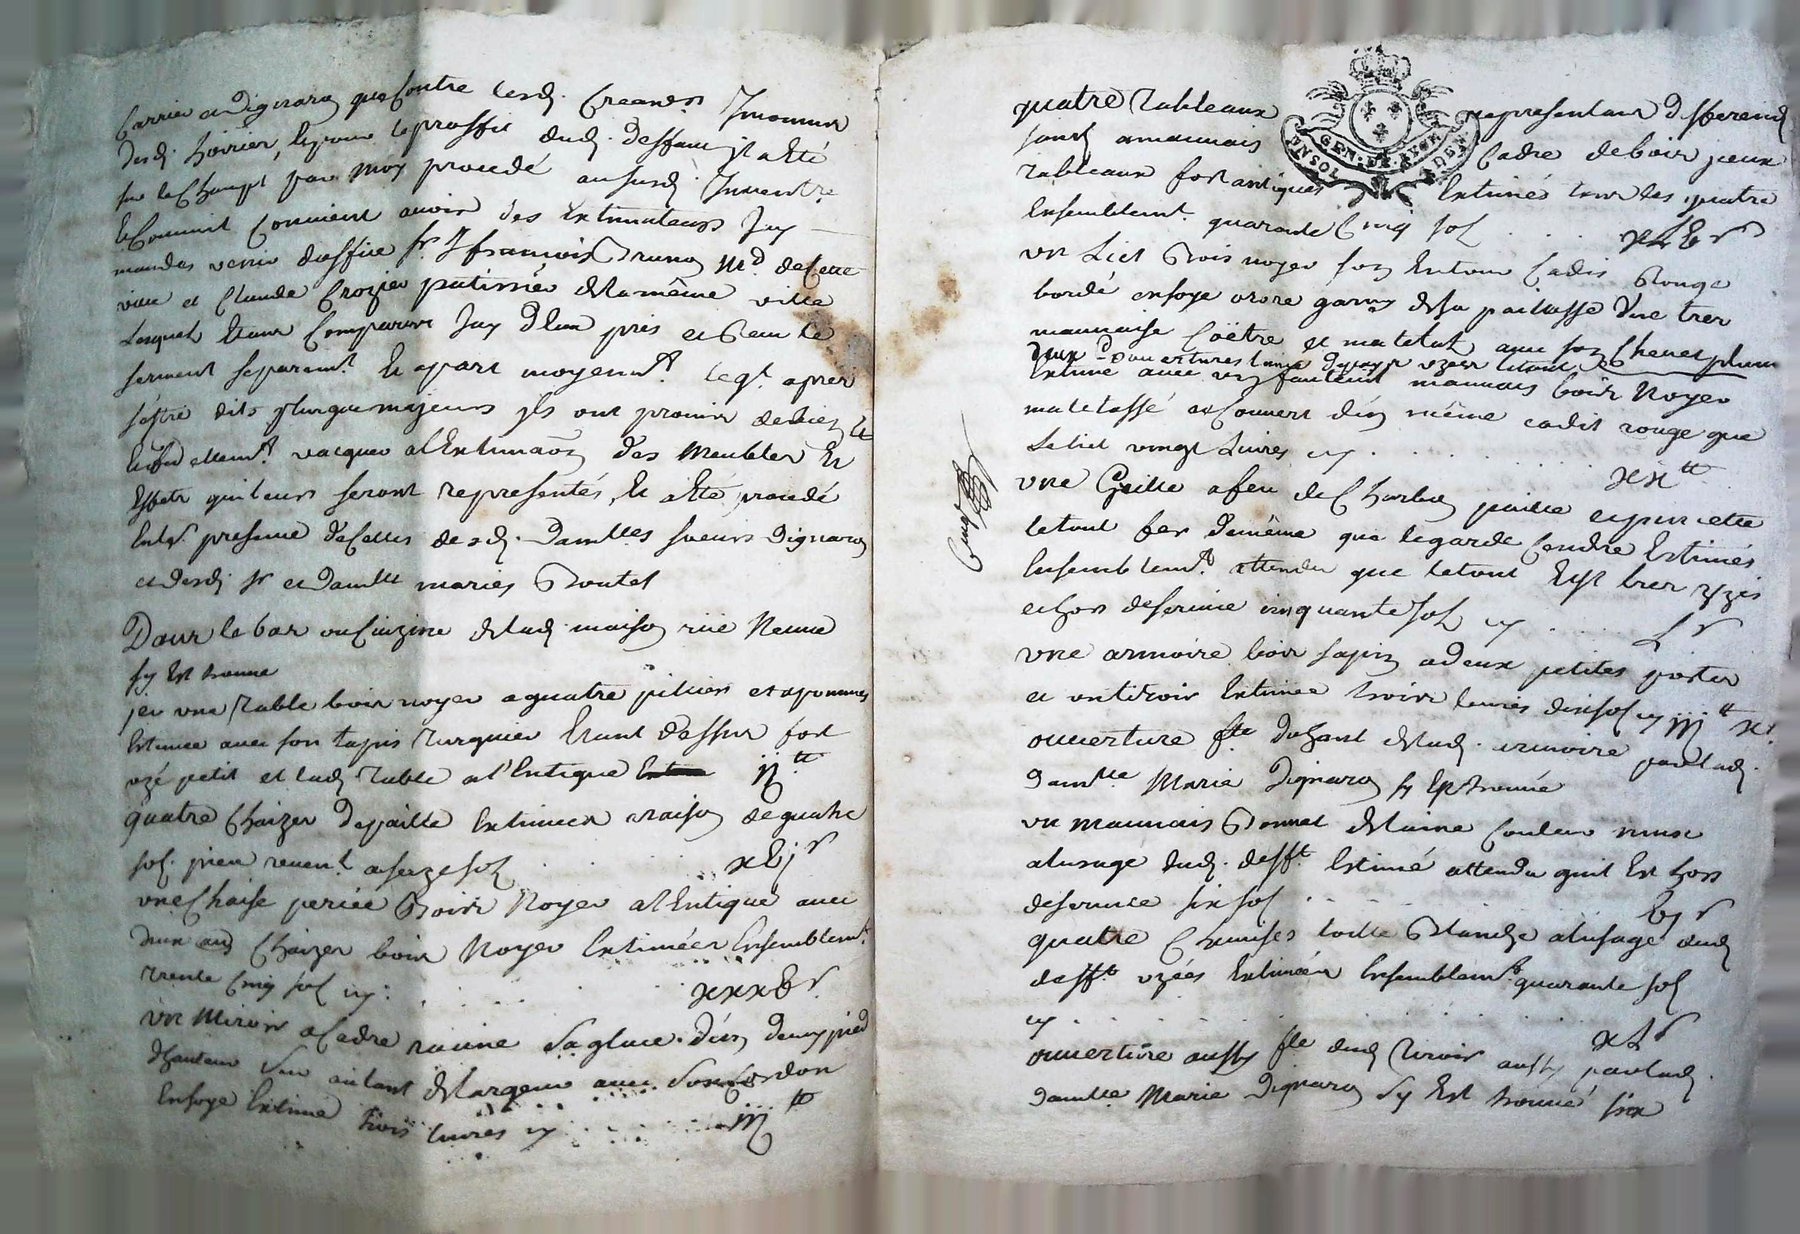 Carrier et Dignaron que Contre lesd. Creanciers Inconnus
desd. hoiries, le pour le proffit dud. deffaut il a êté
sur le Champ par Moy procedé au susd. Inventre.
Et Comme il Convient avoir des Estimateurs Jay
mandés venir d'office sr. françois Brunon Md. de Cette
ville et Claude Crozier patissier de la même ville
Lesquels Etant Comparus Jay d'Eux pris et Receu le
serment séparemt. Et apart moyent. leqt. apres
s'être dits majeurs ils ont promis de bien Et
fidellemt. vacquer a l'Estimaon des Meubles Et
Effets qui leurs seront representés, Et a êté procedé
En la presence de Celles desd. Damlles. soeurs Dignaron
et desd. sr et Damlle mariés Boutet
Dans le bas ou Cuizine de lad. maison rüe Neuve
sy Est trouvé
une Table bois noyer a quatre piliers et a pommes
Estimée avec son tapis Turquier Etant dessus fort
uzé petit et lad. Table a l'Entique ij tt
quatre Chaizes de paille Estimées a raison de quatre
sols piece revent. a seize sols xvj s
une Chaise percée Bois Noyer a l'Entique avec
deux Chaizes bois Noyer Estimées Ensemblemt.
trente Cinq sols cy xxxv s
un Miroir a Cadre racine sa glace d'un demy pied
d'hauteur sur autant de largeur avec son Cordon
En soye Estimé trois livres cy iij tt
quatre Tableaux representant differends
saints a mauvais Cadre de bois vieux
Tableaux fort antiques Estimés tous les quatre
Ensemblemt. quarante Cinq sols xLv s
GEN. DE LYON
UN SOL DEN
un Lict Bois noyer son Entour Cadis Rouge
bordé en soye garny de sa paillasse d'une tres
mauvaise Coëtre et matelat avec son Chevet plume
deux Couvertures laine
Estimé avec un fauteuil mauvais bois Noyer
matelassé et Couvert d'un même cadis rouge que
Le lict vingt Livres cy xx tt
une Grille a feu de Charbon paille et pincette
le tout fer de même que le garde Cendre Estimés
Ensemblemt. attendu que le tout Est tres uzés
et hors de service cinquante sols cy L s
une armoire bois sapin a deux petites portes
et un tiroir Estimée trois livres dix sols cy iij tt x s
ouverture fte. du haut de lad. armoire par lad.
Damlle Marie Dignaron sy Est trouvé
un mauvais Bonnet de laine Couleur
a l'usage dud. defft. Estimé attendu qu'il Est hors
de service six sols vj s
quatre Chemises toille Blanche a l'usage dud.
defft. uzées Estimées Ensemblemt. quarante sols
cy xL s
ouverture aussy fte. dud. tiroir aussy par lad.
Damlle Marie Dignaron sy Est trouvé six